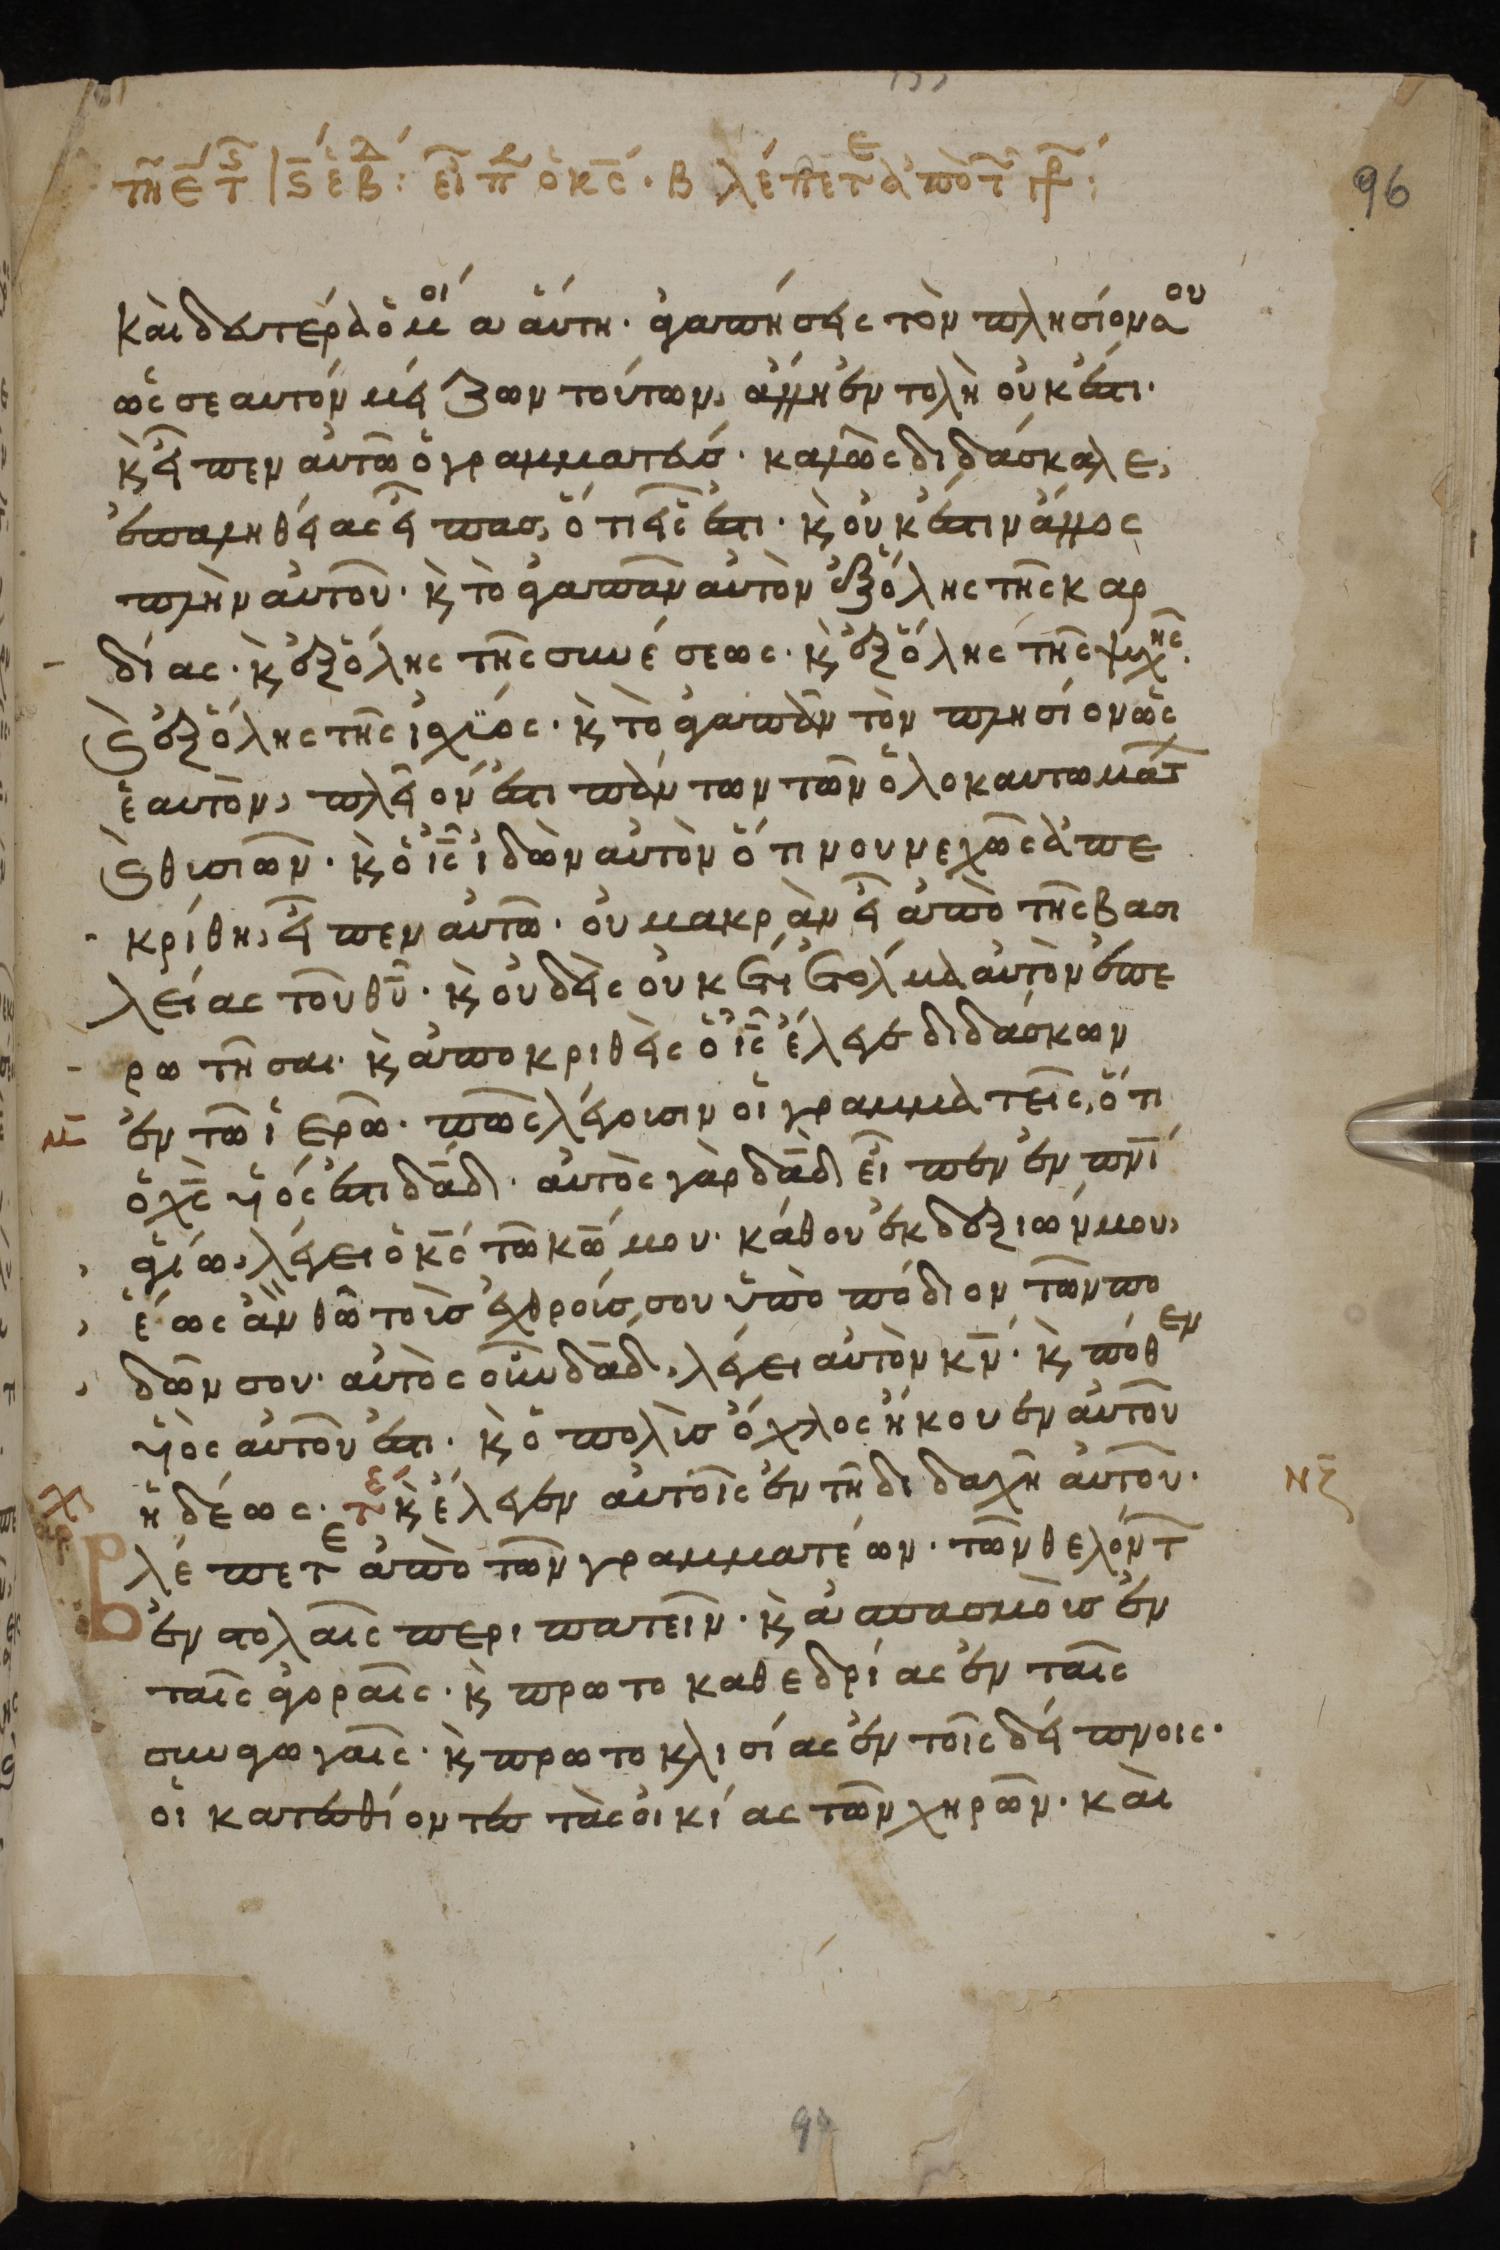 τῇ ε τ ς ἑβ: εἶπ ὁ κς. βλέπετε ἀπὸ τ γρ:
96
καὶ δευτέρα ὁμοία αὕτη· ἀγαπήσεις τὸν πλησίον σου
ὡς σεαυτόν· μείζων τούτων, ἄλλη ἐντολὴ οὐκ ἔστι·
κ εἶπεν αὐτῶ ὁ γραμματεύς· καλῶς διδάσκαλε,
ἐπαληθείας εἶπας, ὅτι εἷς ἐστι· κ οὐκ ἔστιν ἄλλος
πλὴν αὐτοῦ· κ τὸ ἀγαπᾶν αὐτὸν ἐξ ὅλης τῆς καρ
δίας· κ ἐξ ὅλης τῆς συνέσεως· κ ἐξ ὅλης τῆς ψυχῆς·
κ ἐξ ὅλης τῆς ἰσχύος· κ τὸ ἀγαπᾶν τὸν πλησίον ὡς
ἑαυτὸν, πλεῖόν ἐστι πάντων τῶν ὁλοκαυτωμάτ
κ θυσιῶν· κ ὁ ἰς ἰδὼν αὐτὸν ὅτι νουνεχῶς ἀπε
κρίθη, εἶπεν αὐτῶ· οὐ μακρὰν εἶ ἀπὸ τῆς βασι
λείας τοῦ θυ· κ οὐδεὶς οὐκέτι ἐτόλμα αὐτὸν ἐπε
ρωτῆσαι· κ ἀποκριθεὶς ὁ ἰς ἔλεγε διδάσκων
ἐν τῶ ἱερῶ· πῶς λέγουσιν οἱ γραμματεῖς, ὅτι
ὁ χς υἱός ἐστι δαδ· αὐτὸς γὰρ δαδ εἶπεν ἐν πνι
ἁγίω, λέγει ὁ κς τῶ κω μου· κάθου ἐκ δεξιῶν μου,
ἕως ἂν θῶ τοὺς ἐχθρούς σου ὑποπόδιον τῶν πο
δῶν σου· αὐτὸς οὖν δαδ, λέγει αὐτὸν κν· κ πόθεν
υἱὸς αὐτοῦ ἐστι· κ ὁ πολὺς ὄχλος ἤκουεν αὐτοῦ
ἡδέως· κ ἔλεγεν αὐτοῖς ἐν τῆ διδαχῆ αὐτοῦ·
Βλέπετε ἀπὸ τῶν γραμματέων· τῶν θελόντ
ἐν στολαῖς περιπατεῖν· κ ἀσπασμοὺς ἐν
ταῖς ἀγοραῖς· κ πρωτοκαθεδρίας ἐν ταῖς
συναγωγαῖς· κ πρωτοκλισίας ἐν τοῖς δείπνοις·
οἱ κατεσθίοντες τὰς οἰκίας τῶν χηρῶν· καὶ